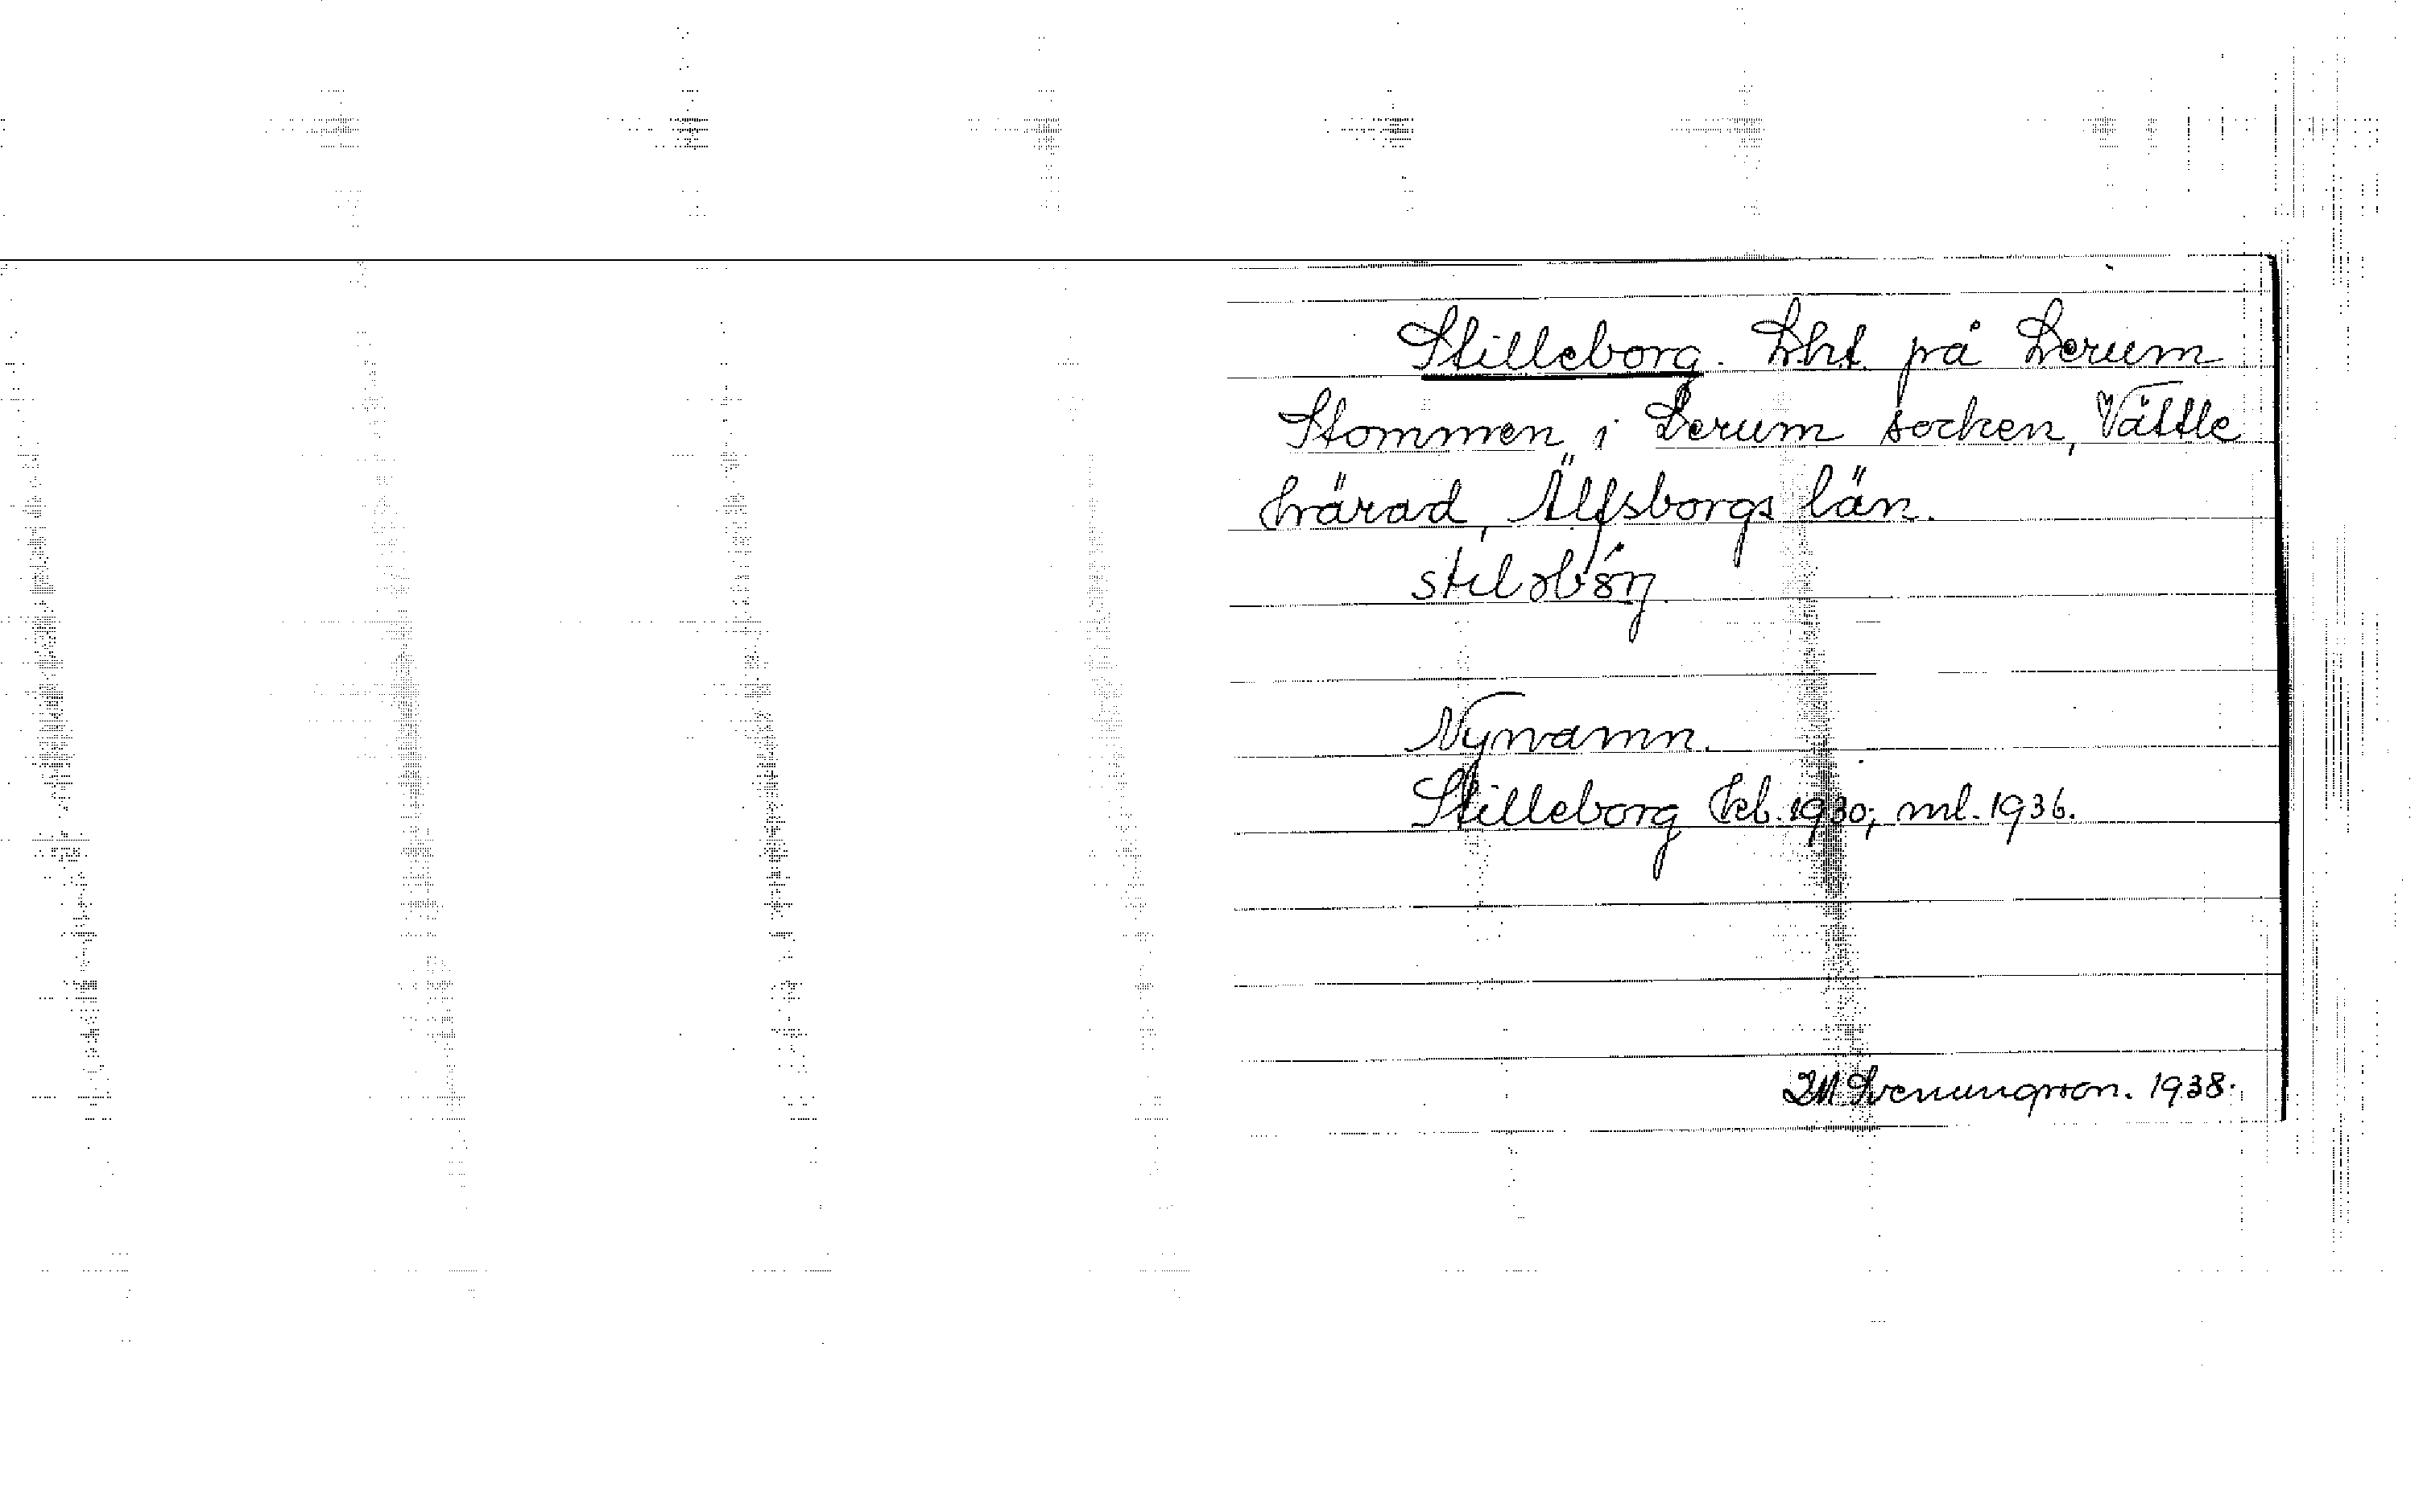 Stilleborg. Lht på Lerum
Stommen i Lerum socken, Vättle
härad, Älfsborgs län.
Nynamn.
Stilleborg Feb. 1930; ml. 1936.
IM Svenungsson. 1938.